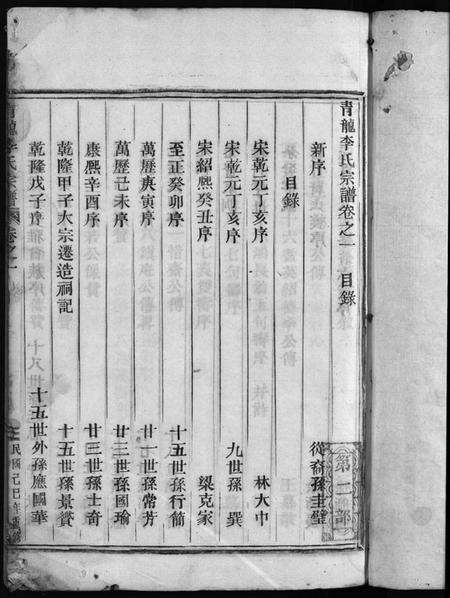 青龍李氏宗譜卷之一 目錄
第二部
新序 從裔孫圭璧
目錄
宋乾元丁亥序 林大中
宋乾元丁亥序 九世孫 撰
宋紹熙癸丑序 梁克家
至正癸卯序 十五世孫行簡
萬曆庚寅序 廿一世孫常芳
萬曆己未序 廿二世孫國瑜
康熙辛酉序 廿三世孫士奇
乾隆甲子大宗遷造祠記 十五世孫景賢
乾隆戊子序 十五世外孫應國華
民國己巳年